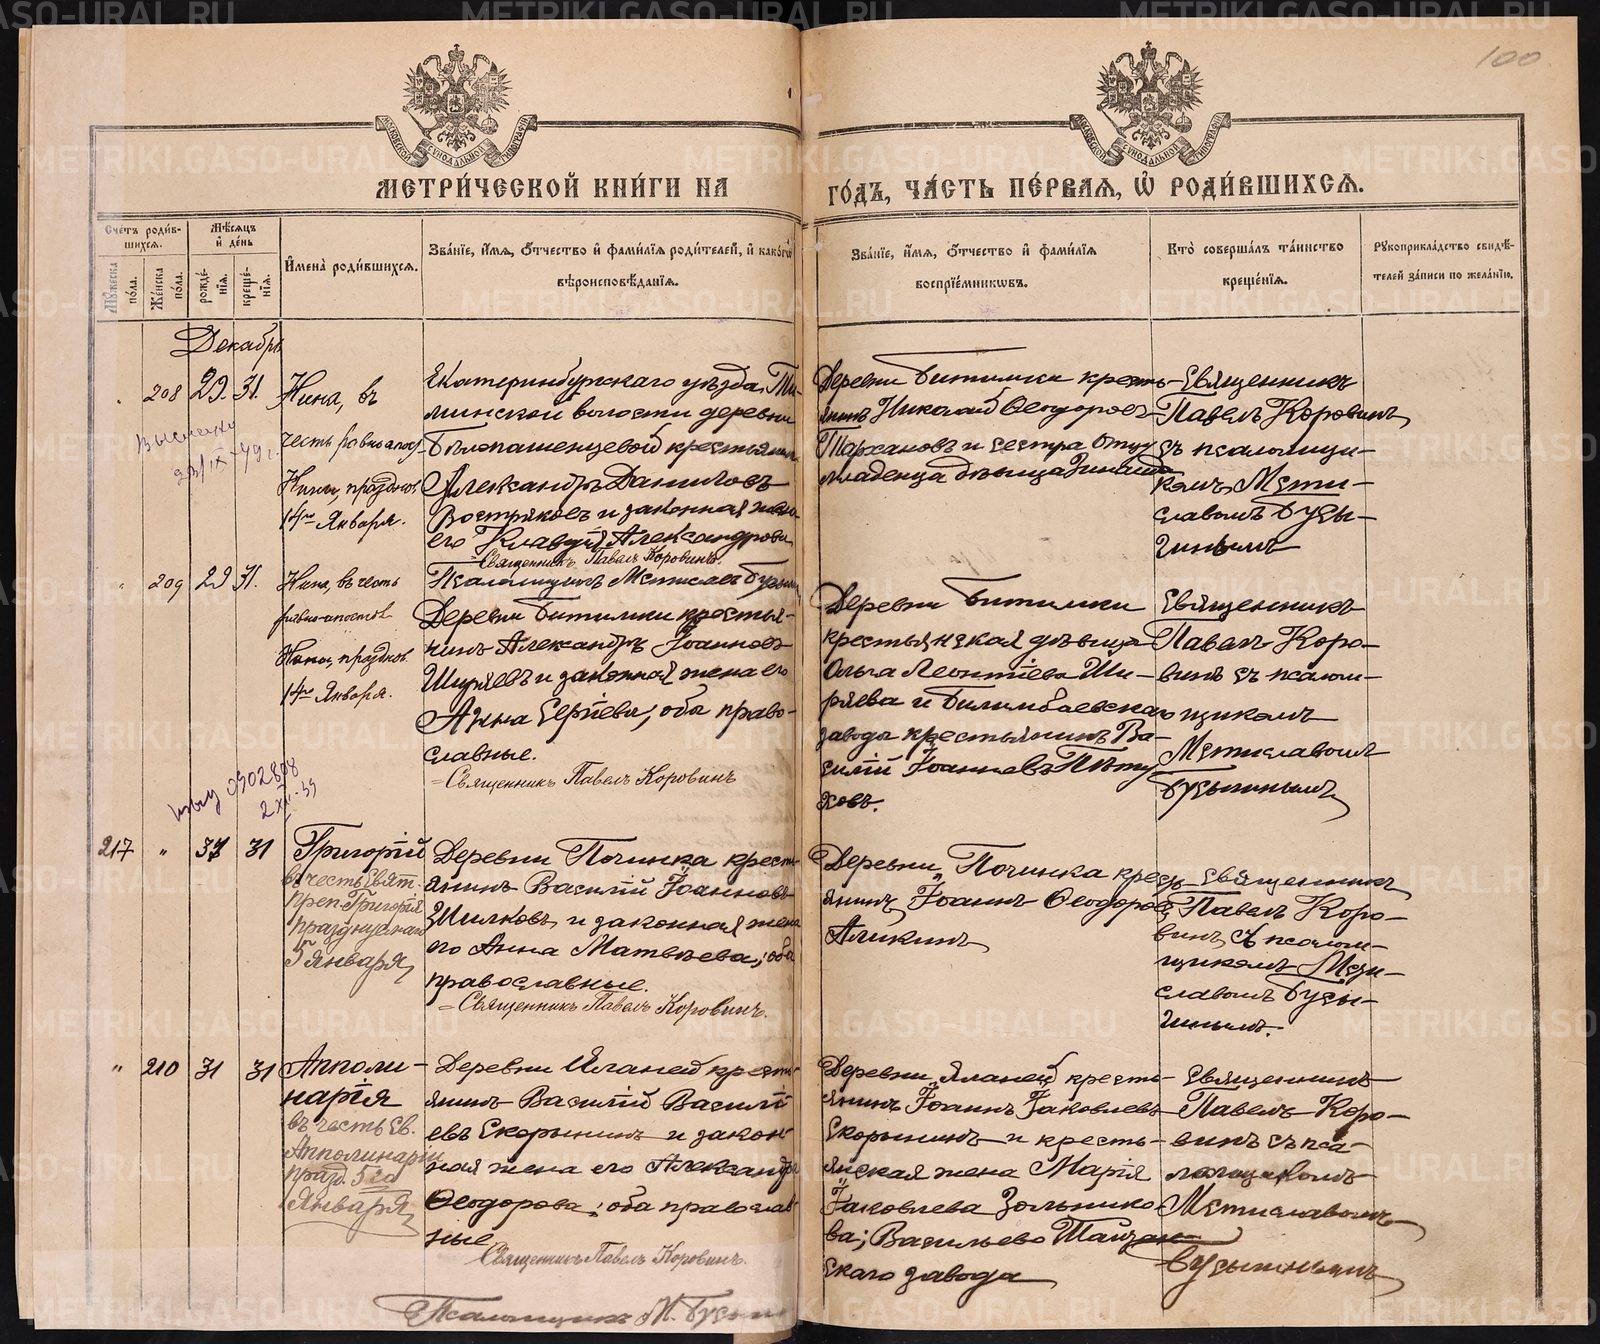 100
МЕТРИ́ЧЕСКОЙ КНИ́ГИ НА
ГО́ДЪ, ЧА́СТЬ ПЕ́РВАЯ, Ѽ РОДИ́ВШИХСЯ.
Счетъ роди́в-
шихся.
Му́жеска
по́ла.
Же́нска
по́ла.
Мѣ́сяцъ
и де́нь
рожде́-
нія.
креще́-
нія.
Имена̀ роди́вшихся.
Зва́ніе, и́мя, о́тчество и фами́лія роди́телей, и како́гѡ
вѣроисповѣ́данія.
Зва́ніе, и́мя, о́тчество и фами́лія
воспріе́мникѡвъ.
Кто̀ соверша́лъ та́инство
креще́нія.
Рꙋкоприкла́дство свидѣ́-
телей за́писи по жела́нію.
Декабрь
208 29. 31.
Нина, въ
честь равноапос
Нины, празднов.
14го Января.
Екатеринбургскаго уѣзда, Ти-
минской волости деревни
Бѣлопашенцевой крестьянин
Александръ Даниловъ
Востряковъ и законная жена
его Клавдія Александрова
= Священникъ Павелъ Коровинъ.
Псаломщикъ Мстиславъ Бусы
Деревни Битимки кресть-
янинъ Николай Ѳеодоровъ
Тархановъ и сестра отцу
младенца дѣвица Зинаида
Священникъ
Павелъ Коровинъ
съ псаломщи-
комъ Мсти-
славомъ Бусы-
гинымъ
209 29 31.
Нина, въ честь
равно-апостол
Нины, празднов.
14го Января.
Деревни Битимки крестья-
нинъ Александръ Іоанновъ
Ширяевъ и законная жена его
Анна Сергіева, оба право-
славные.
= Священникъ Павелъ Коровинъ
Деревни Битимки
крестьянская дѣвица
Ольга Леонтіева Ши-
ряева и Билимбаевскаго
завода крестьянинъ Ва-
силій Іоанновъ Пѣту
ховъ.
Священникъ
Павелъ Коро-
винъ съ псалом-
щикомъ
Мстиславомъ
Бусыгинымъ
2 XI-53
217 " 31 31
Григорій
въ честь Свят.
преп. Григорія
празднуемаго
5 Января
Деревни Починка крест
янинъ Василій Іоанновъ
Шилковъ и законная жена
его Анна Матвѣева; оба
православные.
= Священникъ Павелъ Коровинъ.
Деревни Починка крес
янинъ Іоаннъ Ѳеодоровъ
Аликинъ
Священникъ
Павелъ Коро-
винъ съ псалом-
щикомъ Мсти-
славомъ Бусы-
гинымъ.
" 210 31 31
Апполи-
нарія
въ честь Св.
Апполинаріи
празд. 5го
Января
Деревни Еланей кресть
янинъ Василій Василі
евъ Скорынинъ и закон
ная жена его Александра
Ѳеодорова; оба православ
ные
Священникъ Павелъ Коровинъ.
Деревни Яланей кресть-
янинъ Іоаннъ Іаковлевъ
Скорынинъ и кресть-
янская жена Марія
Іаковлева Зольнико-
ва; Васильево Шайтан
скаго завода
Священникъ
Павелъ Коро-
винъ съ пса-
ломщикомъ
Мстиславомъ
Бусыгинымъ
Псаломщикъ М. Бусы
METRIKI.GASO-URAL.RU